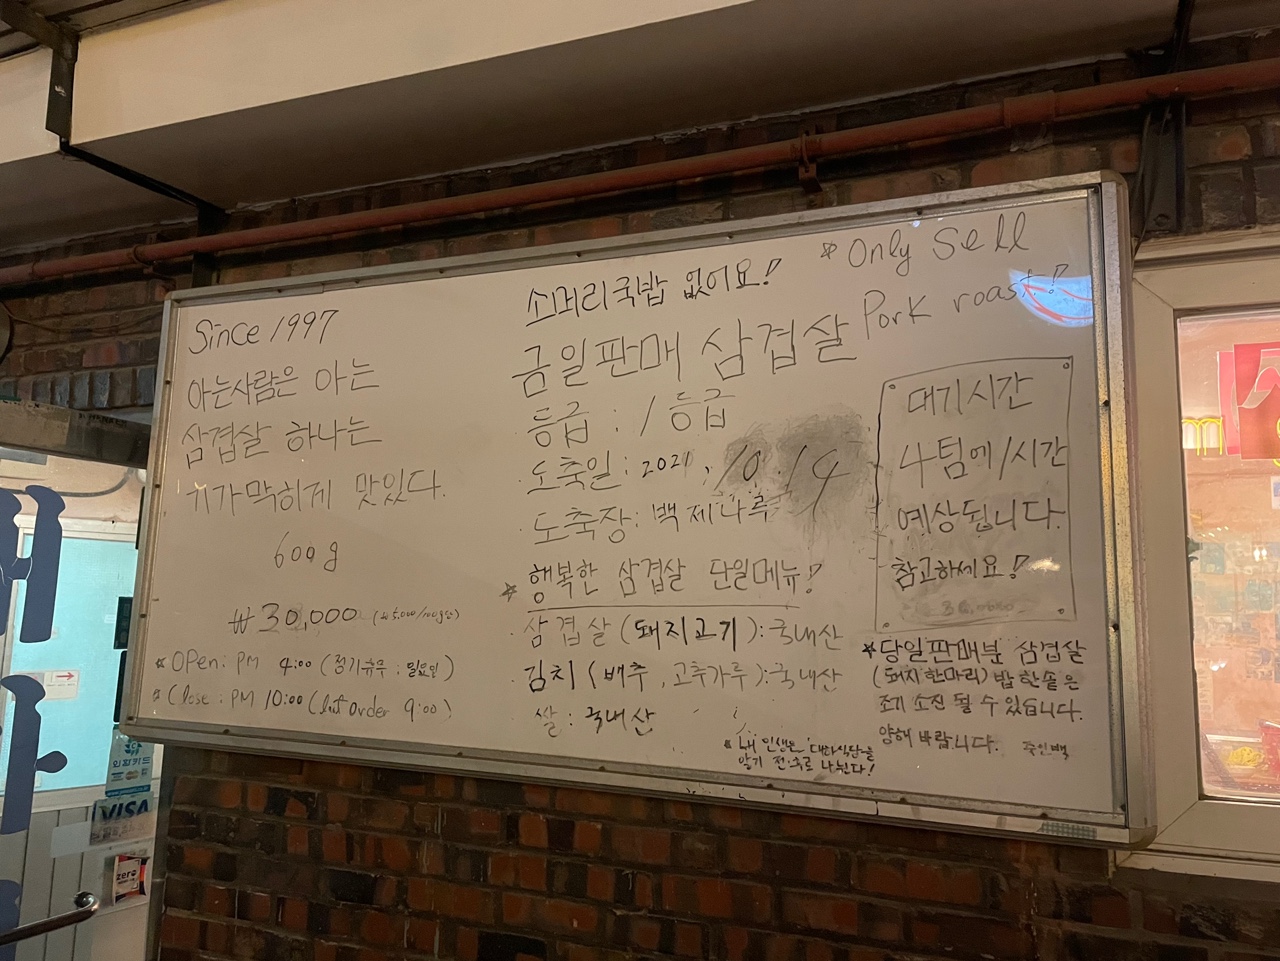 Since 1997
아는사람은 아는
삼겹살 하나는
기가막히게 맛있다.
600g
₩30,000
* OPen: PM 4:00 (정기휴무 : 일요일)
* Close : PM 10:00 (last order 9:00)
소머리국밥 없어요!
금일판매 삼겹살
등급 : 1등급
· 도축일 : 2021. 10. 14
· 도축장 : 백제나루
* 행복한 삼겹살 단일메뉴!
· 삼겹살 (돼지고기) : 국내산
김치 (배추, 고추가루) : 국내산
· 쌀 : 국내산
* 내 인생은 '대하식당'을
알기 전·후로 나뉜다!
* Only Sell
Pork roast!
대기시간
4팀에 1시간
예상됩니다.
참고하세요!
* 당일판매분 삼겹살
(돼지한마리) 밥한솥은
조기 소진 될 수 있습니다.
양해 바랍니다. 주인백
VISA
zero